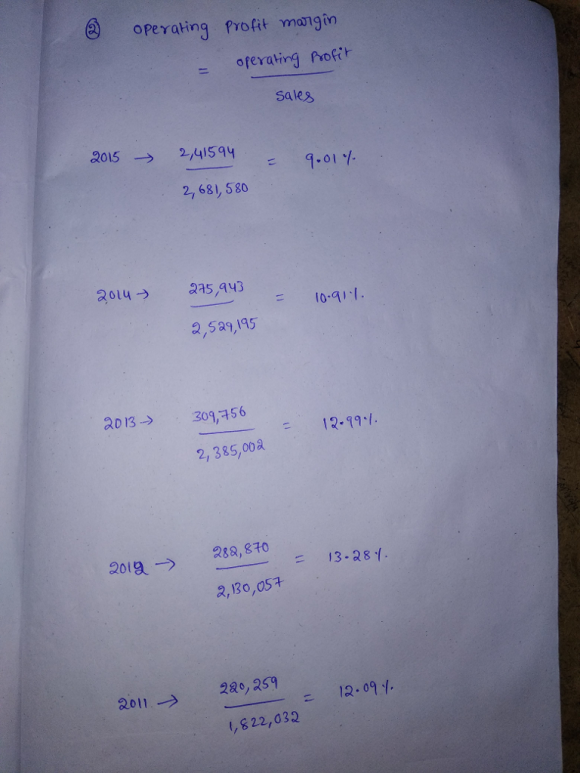 ② operating Profit margin
= operating Profit
sales
2015 → 2,41594 = 9.01%
2,681,580
2014 → 275,943 = 10.91%
2,529,195
2013 → 309,756 = 12.99%
2,385,002
2012 → 282,870 = 13.28%
2,130,057
2011 → 220,259 = 12.09%
1,822,032